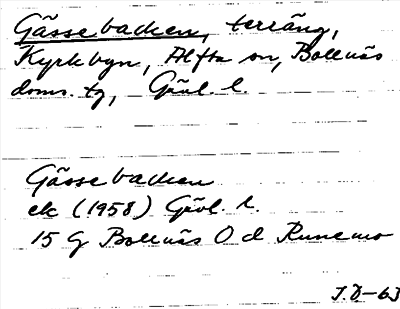 Gässebacken, terräng,
Kyrkbyn, Alfta sn, Bollnäs
doms. tg, Gävl. l.
Gässebacken
ek (1958) Gävl. l.
15 G Bollnäs O d Runemo
J.D-63